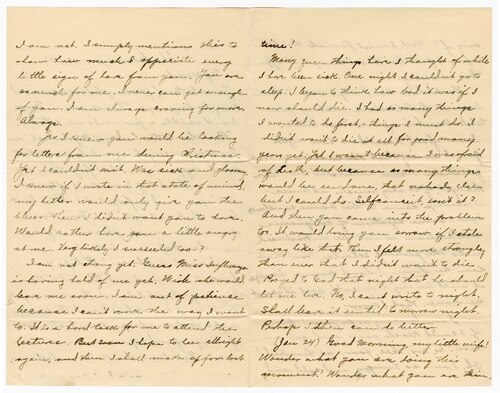 I am not. I simply mention this to
show how much I appreciate every
little sign of love from you. You are
so much for me. I never can get enough
of you. I am always craving for more,
Always.
Yes I knew you would be looking
for letters from me during Christmas.
Yet I couldn't write. Was sick and gloomy,
I knew if I wrote in that state of mind,
my letter would only give you the
blues. Then I didn't want you to have.
Would rather have you a little angry
at me. Very likely I succeeded too?
I am not strong yet. Guess Miss Influenza
is having hold of me yet. Wish she would
leave me soon. I am out of patience
because I can't work the way I want
to. It is a hard task for me to attend the
lectures. But soon I hope to be allright
again, and then I shall make up for lost
time!
Many queer things have I thought of while
I have been sick. One night I couldn't go to
sleep. I began to think how bad it was if I
now should die. I had so many things
I wanted to do first - things I must do. I
didn't want to die at all for good many
years yet. Not because I was afraid
of death, but because so many things
would be undone, that nobody else
but I could do. Selfconceit, isn't it?
And then you came into the problem
too. It would bring you sorrow if I stole
away like that. Then I felt more strongly
than ever that I didn't want to die.
Prayed to God that night that he should
let me live. No, I can't write to night,
Shall leave it until to morrow night.
Perhaps I then can do better.
(Jan 24) Good Morning, my little wife!
Wonder what you are doing this
moment? Wonder what you are